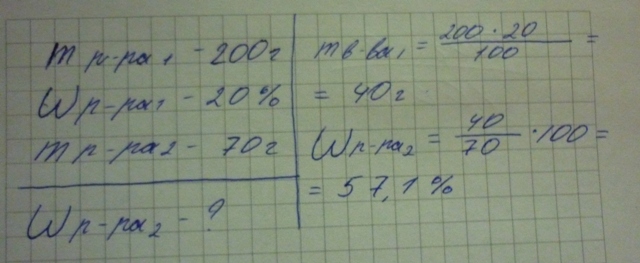 m р-ра₁ - 200 г
ω р-ра₁ - 20 %
m р-ра₂ - 70 г
ω р-ра₂ - ?
m в-ва₁ = 200 · 20 / 100 =
= 40 г
ω р-ра₂ = 40 / 70 · 100 =
= 57,1 %